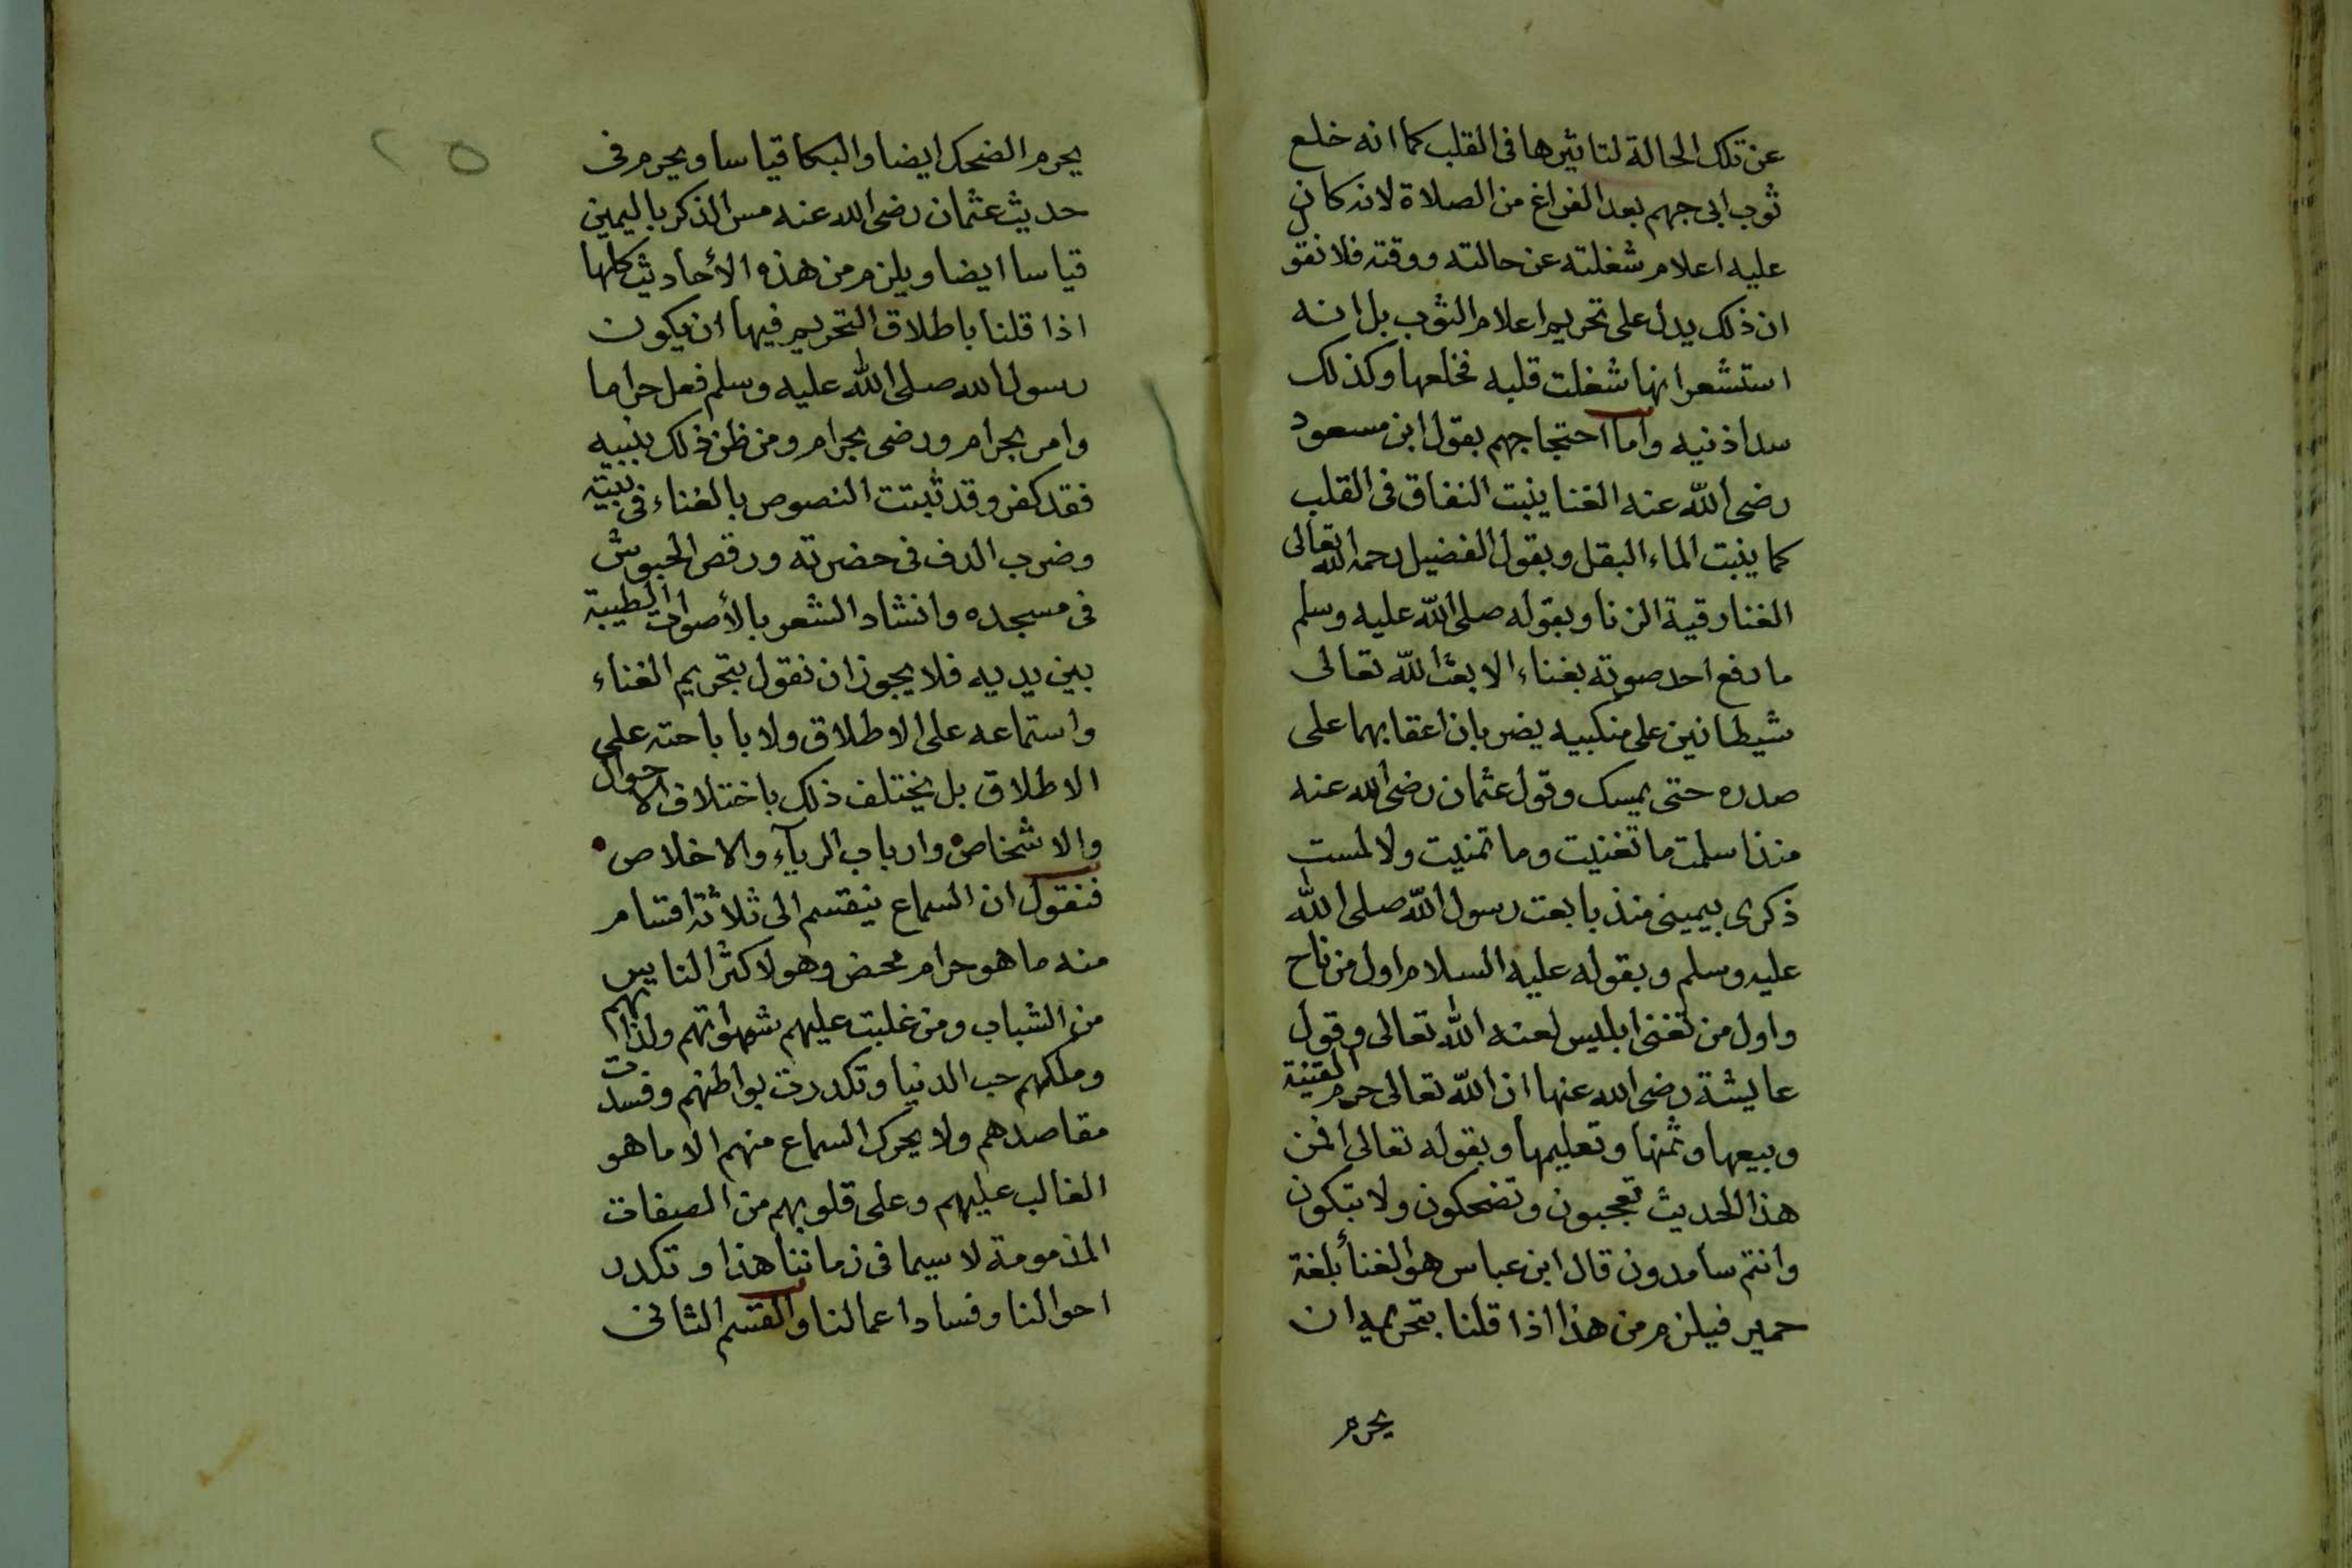 عن تلك الحالة لتاثيرها فى القلب كما انه خلع
ثوب ابى جهم بعد الفراغ من الصلاة لانه كان
عليه اعلام شغلته عن حالته ووقته فلا نقو
ان ذلك يدل على تحريم اعلام الثوب بل انه
استشعر انها شغلت قلبه فخلعها وكذلك
سد اذنيه واما احتجاجهم بقول ابن مسعود
رضى الله عنه الغنا ينبت النفاق فى القلب
كما ينبت الماء البقل وبقول الفضيل رحمه الله تعالى
الغنا رقية الزنا وبقوله صلى الله عليه وسلم
ما رفع احد صوته بغناء الا بعث الله تعالى
شيطانين على منكبيه يضربان اعقابهما على
صدره حتى يمسك وقول عثمان رضى الله عنه
منذ اسلمت ما تغنيت وما تمنيت ولا لمست
ذكرى بيمينى منذ بايعت رسول الله صلى الله
عليه وسلم وبقوله عليه السلام اول من ناح
واول من تغنى ابليس لعنه الله تعالى وقول
عايشة رضى الله عنها ان الله تعالى حرم القينة
وبيعها وثمنها وتعليمها وبقوله تعالى افمن
هذا الحديث تعجبون وتضحكون ولا تبكون
وانتم سامدون قال ابن عباس هو الغنأ بلغة
حمير فيلزم من هذا اذا قلنا بتحريمه ان
يحرم
٢٥
يحرم الضحك ايضا والبكا قياسا ويحرم فى
حديث عثمان رضى الله عنه مس الذكر باليمين
قياسا ايضا ويلزم من هذه الأحاديث كلها
اذا قلنا باطلاق التحريم فيها ان يكون
رسول الله صلى الله عليه وسلم فعل حراما
وامر بحرام ورضى بحرام ومن ظن ذلك بنبيه
فقد كفر وقد ثبتت النصوص بالغناء فى بيته
وضرب الدف فى حضرته ورقص الحبوش
فى مسجده وانشاد الشعر بالأصوات الطيبة
بين يديه فلا يجوز ان نقول بتحريم الغناء
واستماعه على الاطلاق ولا باباحته على
الاطلاق بل يختلف ذلك باختلاف الاحوال
والاشخاص وارباب الريآء والاخلاص
فنقول ان السماع ينقسم الى ثلاثة اقسام
منه ما هو حرام محض وهو لاكثر الناس
من الشباب ومن غلبت عليهم شهواتهم ولذاتهم
وملكهم حب الدنيا وتكدرت بواطنهم وفسدت
مقاصدهم ولا يحرك السماع منهم الا ما هو
الغالب عليهم وعلى قلوبهم من الصفات
المذمومة لا سيما فى زماننا هذا وتكدر
احوالنا وفساد اعمالنا والقسم الثانى